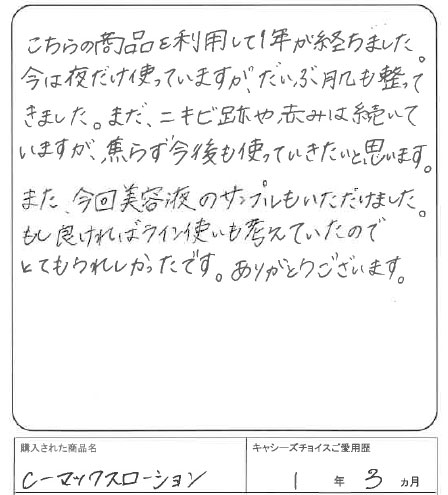 こちらの商品を利用して1年が経ちました。
今は夜だけ使っていますが、だいぶ肌も整って
きました。まだ、ニキビ跡や赤みは続いて
いますが、焦らず今後も使っていきたいと思います。
また、今回美容液のサンプルもいただけました。
もし良ければライン使いも考えていたので
とてもうれしかったです。ありがとうございます。
購入された商品名
Cーマックスローション
キャシーズチョイスご愛用歴
1 年 3 ヵ月